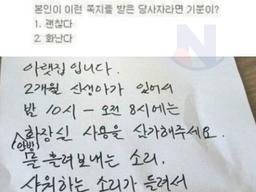 본인이 이런 쪽지를 받은 당사자라면 기분이?
1. 괜찮다
2. 화난다
아랫집입니다.
2개월 신생아가 있어서
밤 10시 - 오전 8시에는
(안방) 화장실 사용을 삼가해주세요.
물 흘려보내는 소리.
샤워하는 소리가 들려서